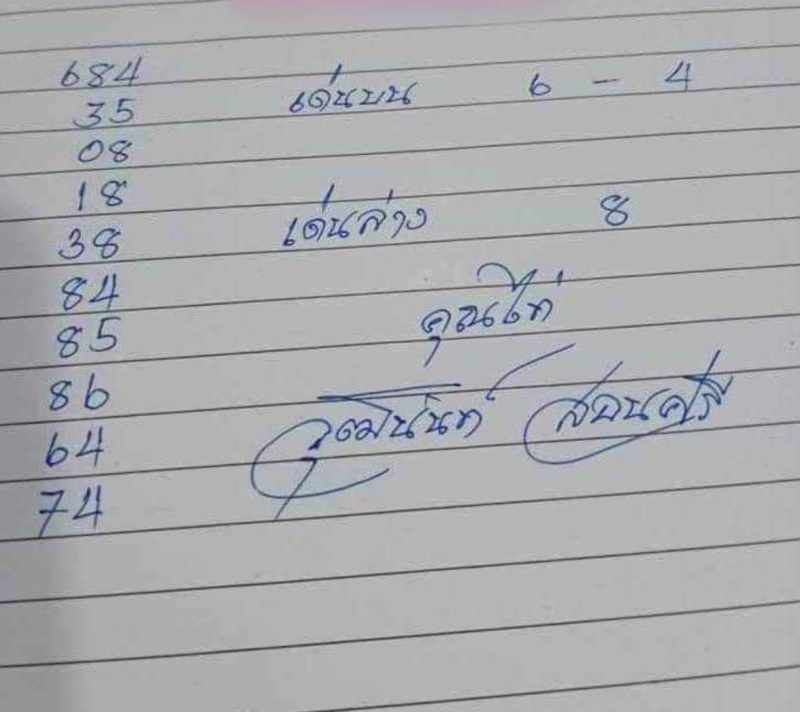 684
35 เด่นบน 6 - 4
08
18
38 เด่นล่าง 8
84
85 คุณไท่
86
64 วุฒินันท์ สอนศรี
74